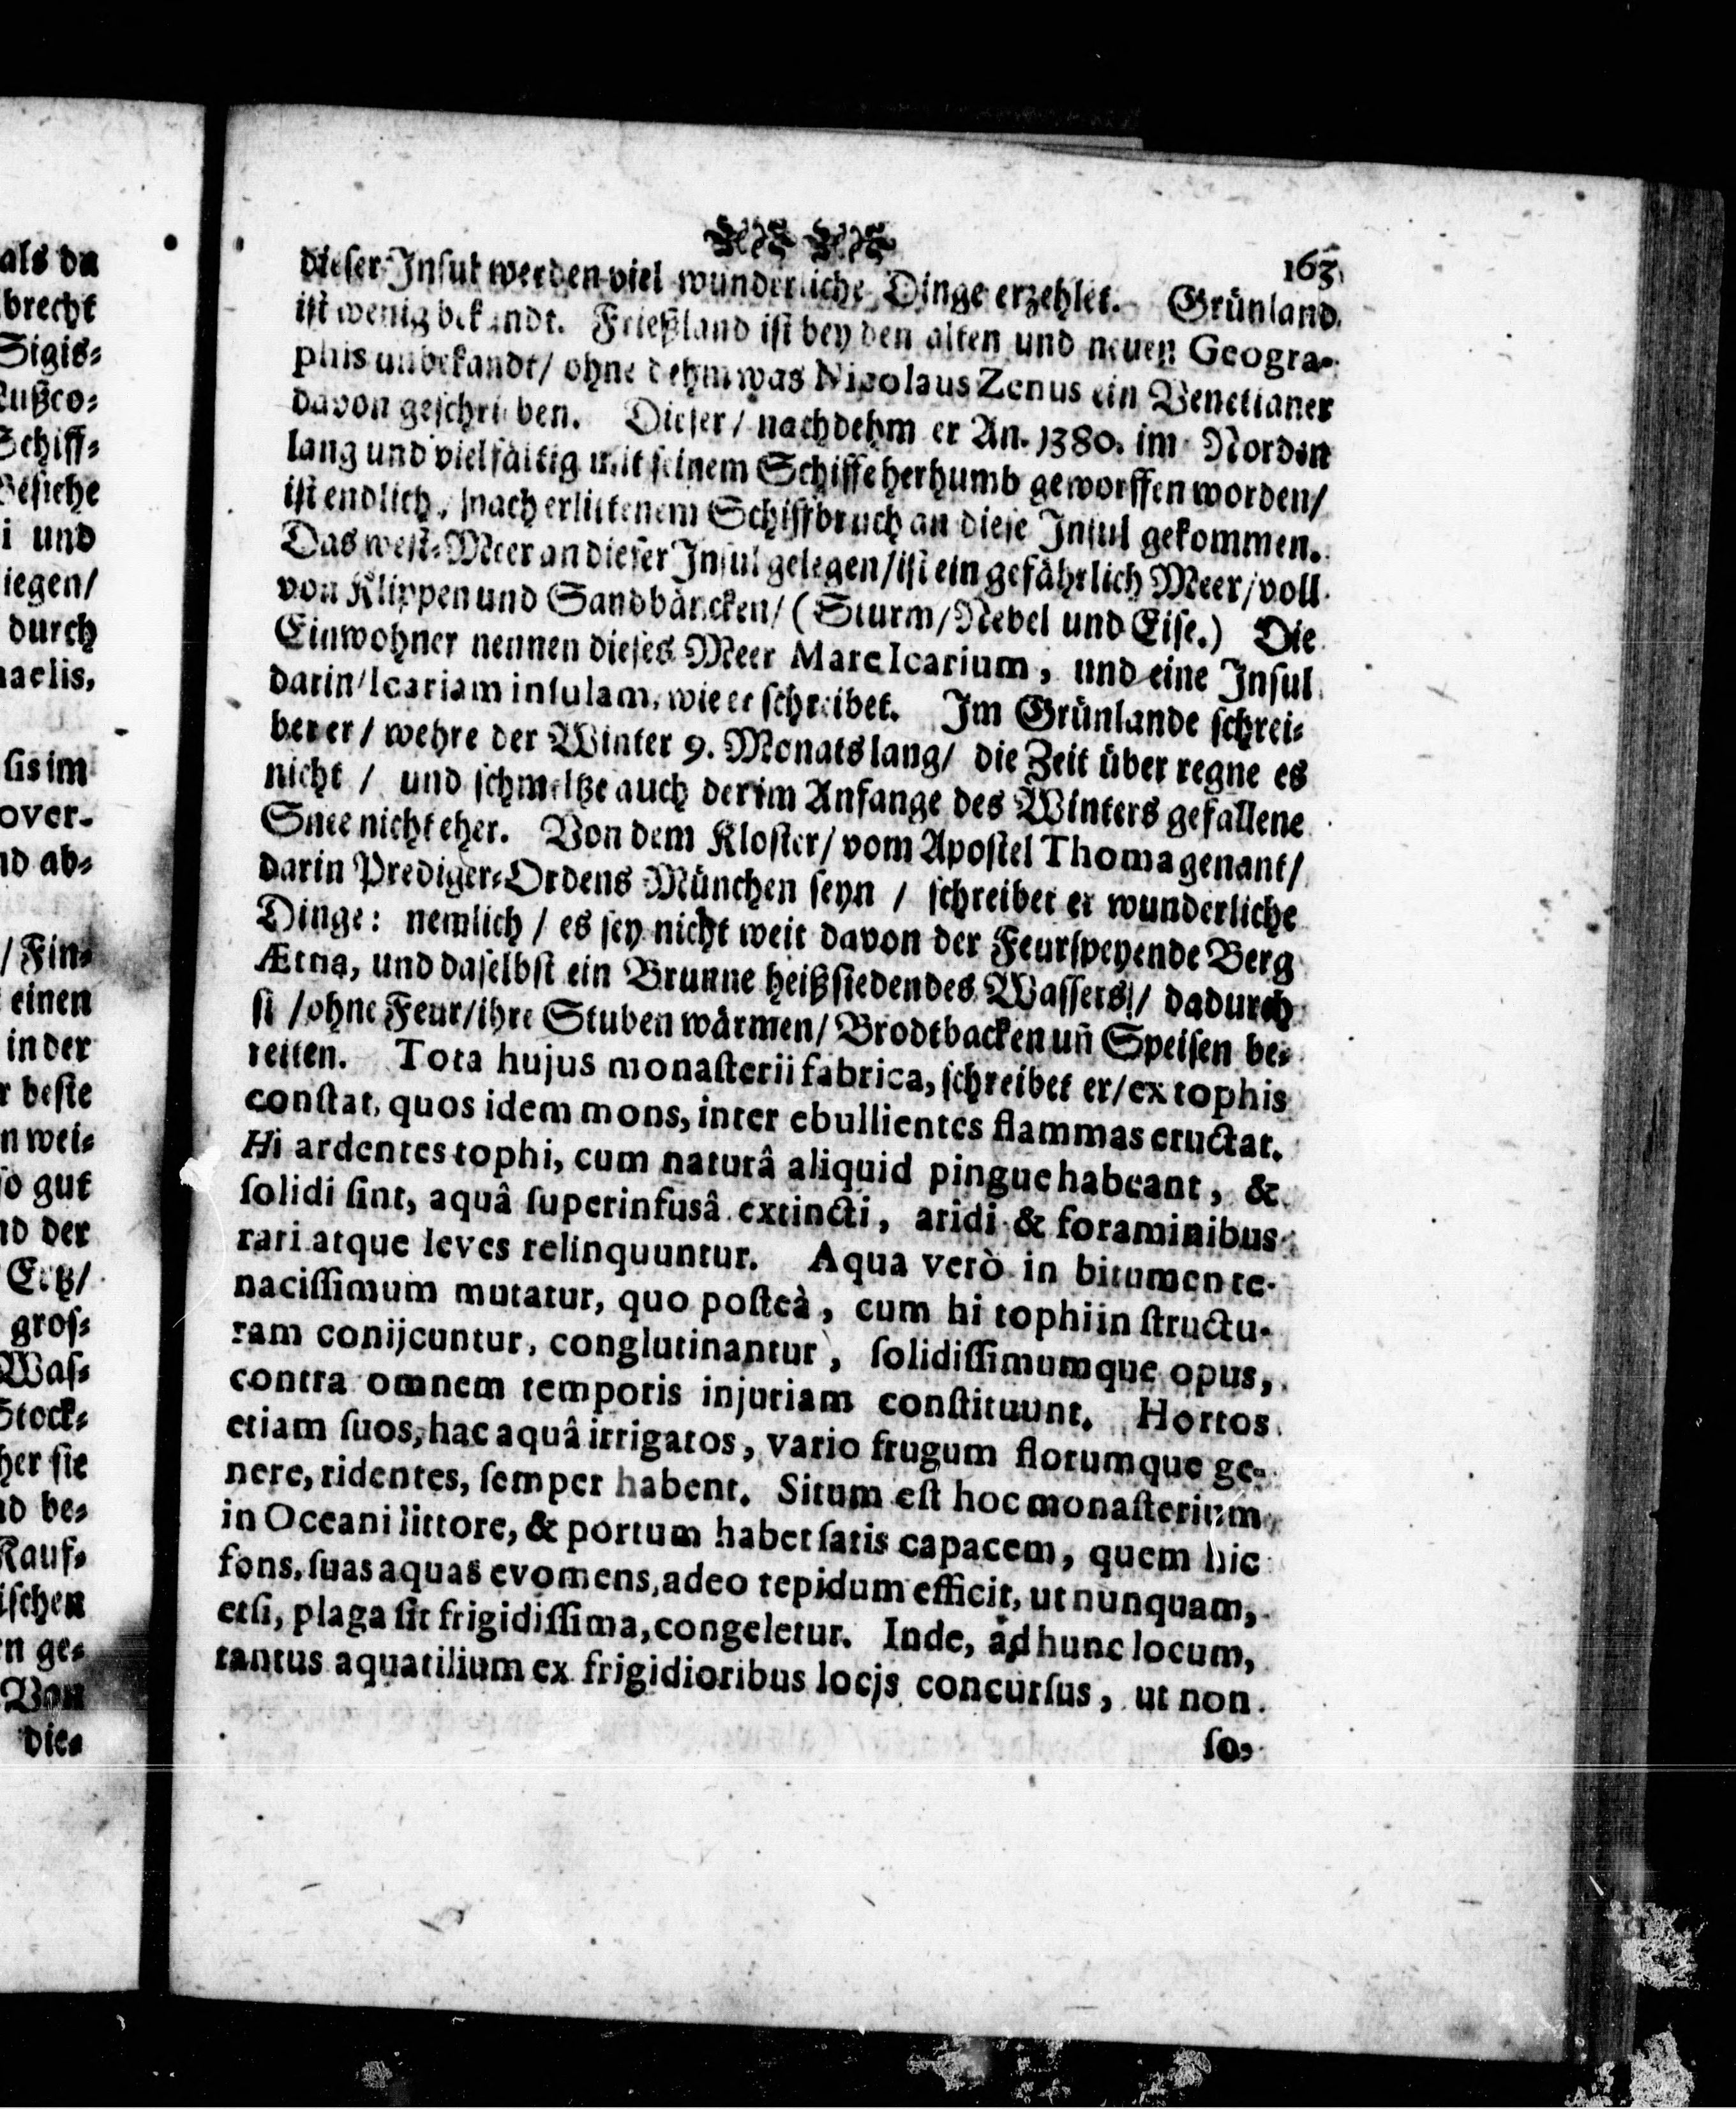 als du
brecht
Sigis-
Rußco-
Schiff-
Besiehe
i und
iegen/
durch
naelis,
sis im
over-
nd ab-
/ Fin-
einen
in der
r beste
n wei-
so gut
nd der
Ertz/
gros-
Was-
Stock-
her sie
nd be-
Kauf-
ischen
en ge-
Von
die-
163
dieser Insul werden viel wunderliche Dinge erzehlet. Grünland
ist wenig bekandt. Frießland ist bey den alten und neuen Geogra-
phis unbekandt/ ohne dehm was Nicolaus Zenus ein Venetianer
davon geschrieben. Dieser/ nachdehm er An. 1380. im Norden
lang und vielfältig mit seinem Schiffe herhumb geworffen worden/
ist endlich, nach erlittenem Schiffbruch an diese Insul gekommen.
Das west-Meer an dieser Insul gelegen/ ist ein gefährlich Meer/ voll
von Klippen und Sandbäncken/ (Sturm/ Nebel und Eise.) Die
Einwohner nennen dieses Meer Mare Icarium, und eine Insul
darin/ Icariam insulam, wie er schreibet. Im Grünlande schrei-
bet er/ wehre der Winter 9. Monats lang/ die Zeit über regne es
nicht / und schmeltze auch der im Anfange des Winters gefallene
Snee nicht eher. Von dem Kloster/ vom Apostel Thoma genant/
darin Prediger-Ordens München seyn / schreibet er wunderliche
Dinge: nemlich / es sey nicht weit davon der Feurspeyende Berg
Ætna, und daselbst ein Brunne heißsiedendes Wassers/ dadurch
si / ohne Feur/ ihre Stuben wärmen/ Brodt backen uñ Speisen be-
reiten. Tota hujus monaſterii fabrica, schreibet er/ ex tophis
conſtat, quos idem mons, inter ebullientes flammas eructat.
Hi ardentes tophi, cum naturâ aliquid pingue habeant, &
ſolidi ſint, aquâ ſuperinfusâ extincti, aridi & foraminibus
rari atque leves relinquuntur. Aqua verò in bitumen te-
naciſſimum mutatur, quo poſteà, cum hi tophi in ſtructu-
ram conijcuntur, conglutinantur, ſolidiſſimumque opus,
contra omnem temporis injuriam conſtituunt. Hortos
etiam ſuos, hac aquâ irrigatos, vario frugum florumque ge-
nere, ridentes, ſemper habent. Situm eſt hoc monaſterium
in Oceani littore, & portum habet ſatis capacem, quem hic
fons, ſuas aquas evomens, adeo tepidum efficit, ut nunquam,
etſi, plaga ſit frigidiſſima, congeletur. Inde, ad hunc locum,
tantus aquatilium ex frigidioribus locjs concurſus, ut non
ſo,